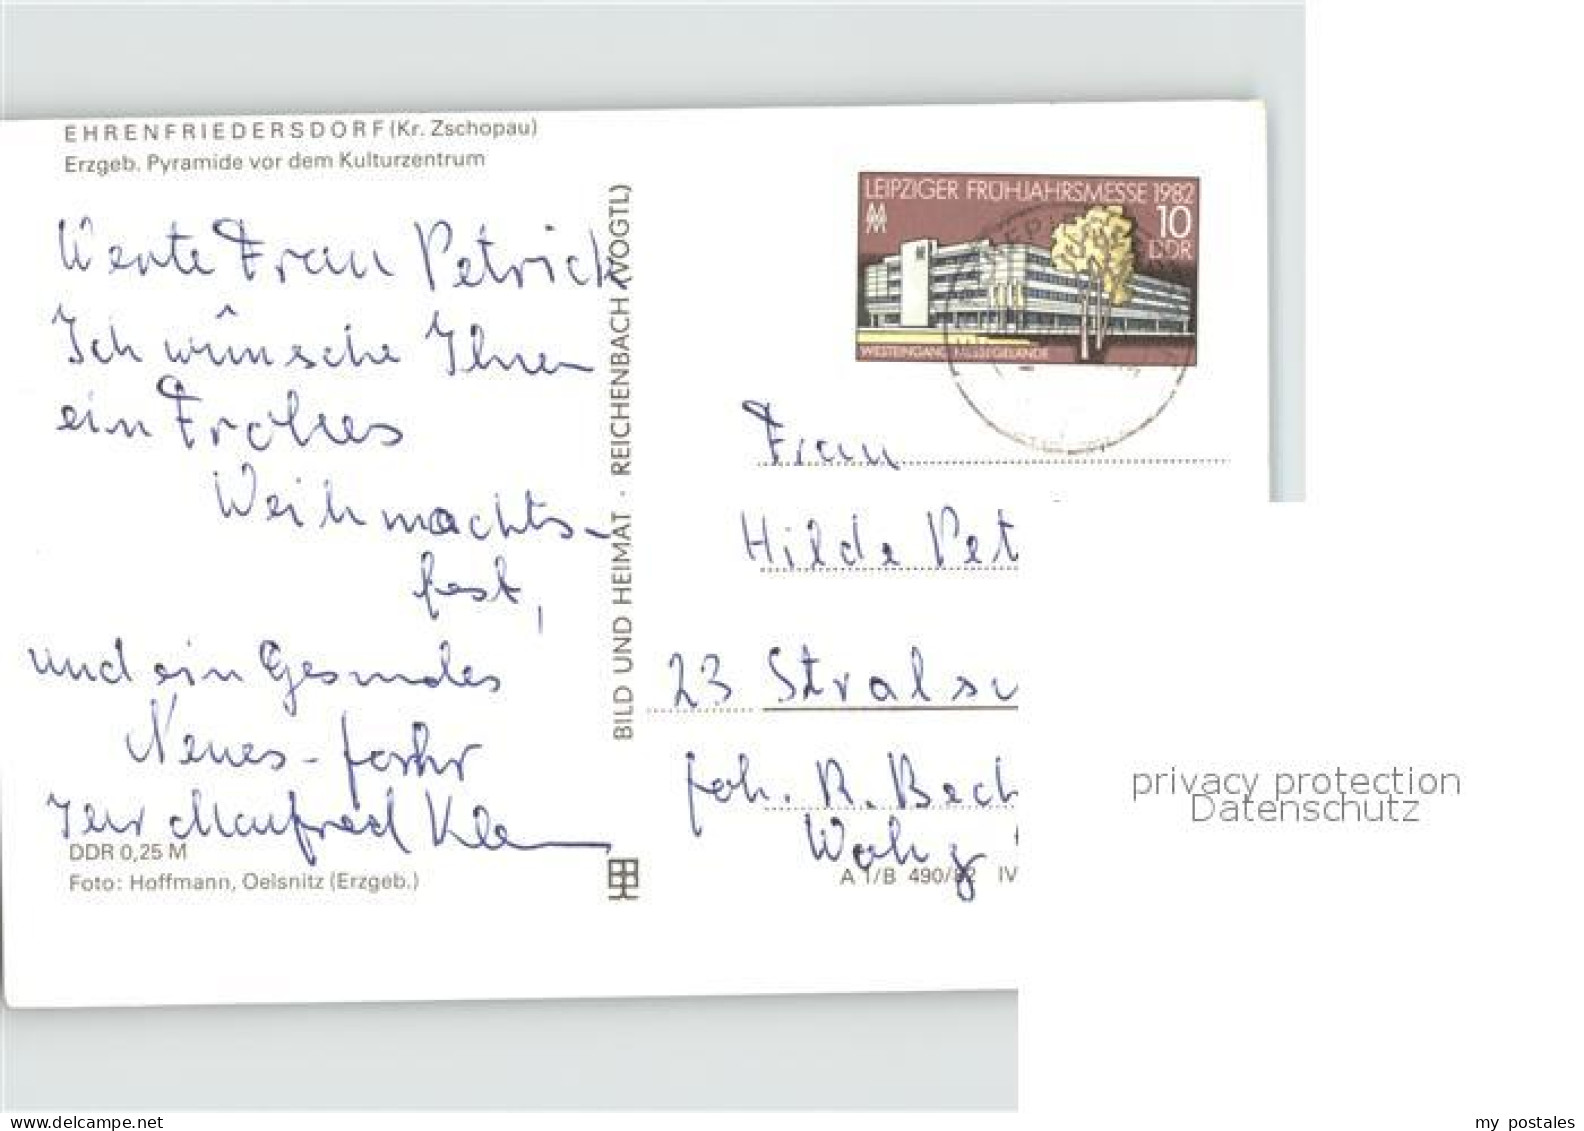 EHRENFRIEDERSDORF (Kr. Zschopau)
Erzgeb. Pyramide vor dem Kulturzentrum
Werte Frau Petrick
Ich wünsche Ihnen
ein Frohes
Weihnachts-
fest,
und ein Gesundes
Neues-Jahr
Ihr Manfred
DDR 0,25 M
Foto: Hoffmann, Oelsnitz (Erzgeb.)
BILD UND HEIMAT · REICHENBACH (VOGTL)
LEIPZIGER FRÜHJAHRSMESSE 1982
MM
10
DDR
WESTEINGANG MESSEGELÄNDE
Frau
Hilde Pet
23 Stralsu
Joh. R. Bech
A 1/B 490/82 IV
privacy protection
Datenschutz
www.delcampe.net
my postales